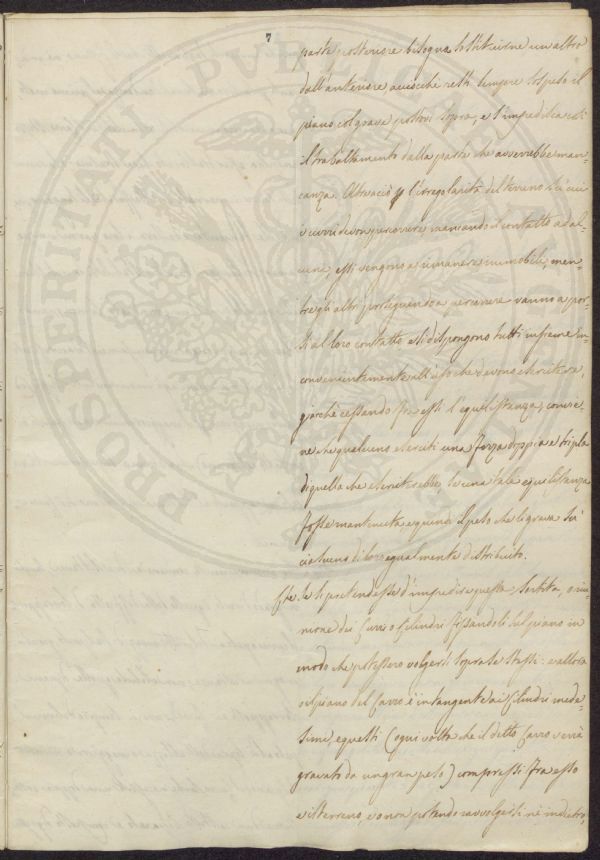 7
parte posteriore bisogna sostituirne un altro
dall'anteriore acciocchè resti sempre sospeso il
piano col grave postovi sopra, e s'impedisca così
il trabaltamento dalla parte che avverrebbe man-
canza. Altracciò p l'irregolarità del terreno su cui
i curri devon percorrere, mancando il contatto ad al-
cuni, essi vengono a rimanere immobili, men-
tre gli altri proseguendo a percorrere vanno a por-
si al loro contatto e si dispongono tutti insieme in-
convenientemente all'uso che devono esercitare,
giacchè cessando fra essi l'equidistanza, convie-
ne che qualcuno eserciti una forza doppia e tripla
di quella che eserciterebbe, se una tale equidistanza
fosse mantenuta, e quindi il peso che li grava su
ciascuno di loro egualmente distribuito.
Che se si pretendesse d'impedire questa sortita, o riu-
nione dei curri o cilindri fissandoli sul piano in
modo che potessero volgersi sopra se stessi: allora
il piano del carro è in tangente ai cilindri mede-
simi, e questi (ogni volta che il detto carro verrà
gravato da un gran peso) compressi fra esso
e il terreno, o non potendo ravvolgersi nè indietro,
PROSPERITATI PVBLICAE